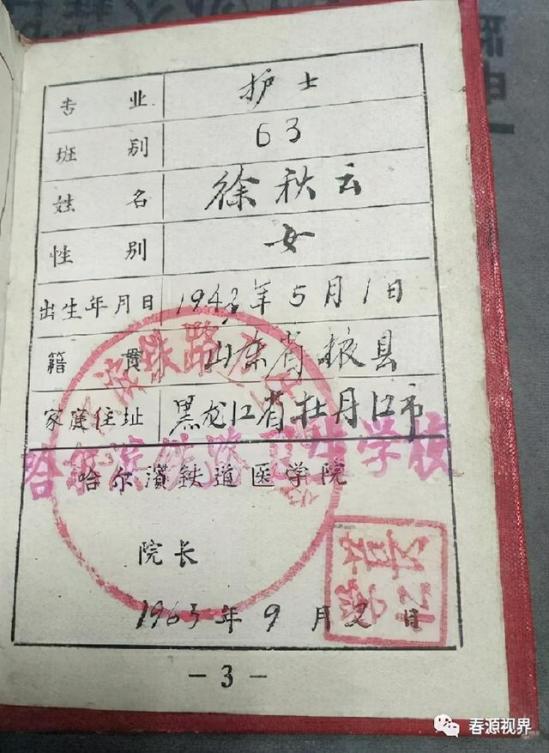 专业 护士
班别 63
姓名 徐秋云
性别 女
出生年月日 1943年5月1日
籍贯 山东省掖县
家庭住址 黑龙江省牡丹江市
哈尔滨铁路卫生学校
哈尔滨铁道医学院
院长
1963年9月2日
-3-
春源视界